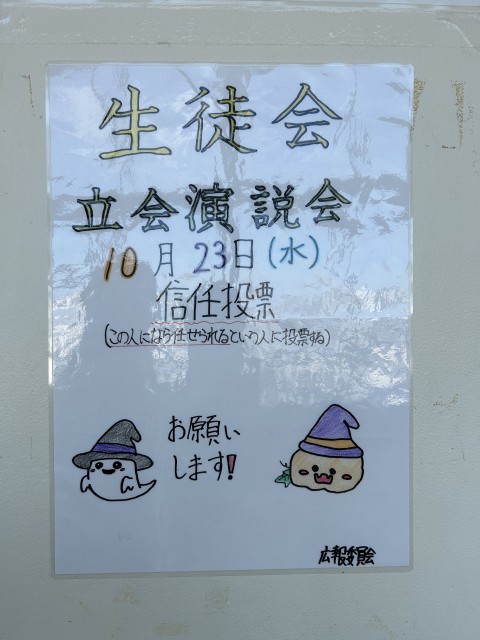 生徒会
立会演説会
10月23日(水)
信任投票
(この人になら任せられるという人に投票する)
お願い
します!
広報委員会